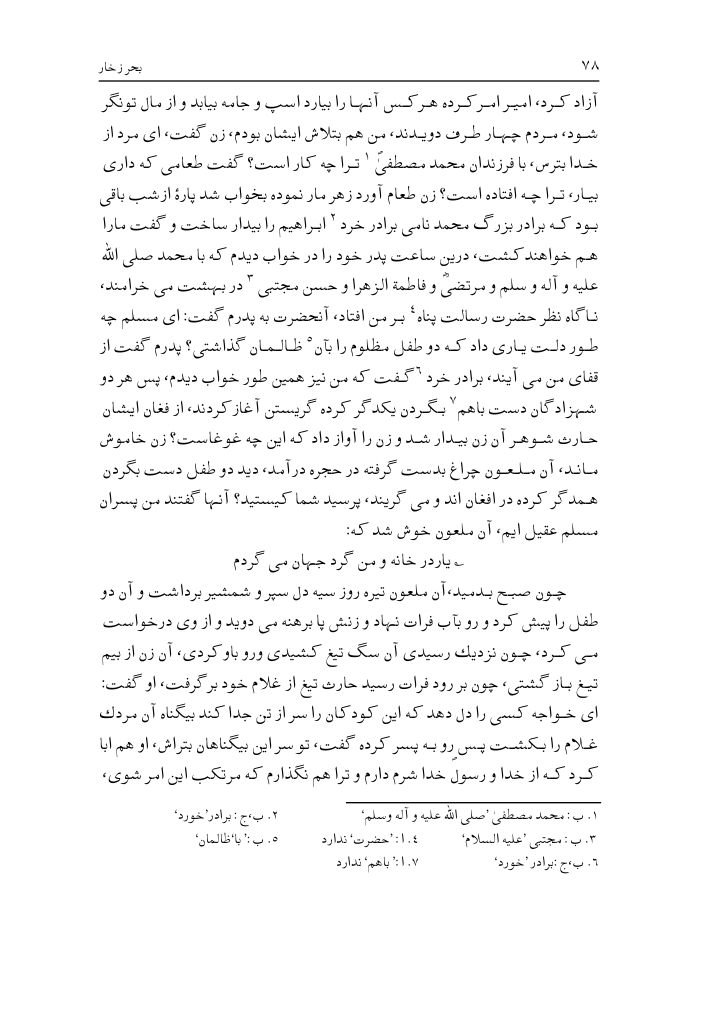 ۷۸
بحر زخار
آزاد کرد، امیر امر کرده هر کس آنها را بیارد اسپ و جامه بیابد و از مال تونگر
شود، مردم چهار طرف دویدند، من هم بتلاش ایشان بودم، زن گفت، ای مرد از
خدا بترس، با فرزندان محمد مصطفیٰؐ ۱ ترا چه کار است؟ گفت طعامی که داری
بیار، ترا چه افتاده است؟ زن طعام آورد زهر مار نموده بخواب شد پارۀ ازشب باقی
بود که برادر بزرگ محمد نامی برادر خرد ۲ ابراهیم را بیدار ساخت و گفت مارا
هم خواهند کشت، درین ساعت پدر خود را در خواب دیدم که با محمد صلی الله
علیه و آله و سلم و مرتضیٰؓ و فاطمة الزهرا و حسن مجتبی ۳ در بهشت می خرامند،
ناگاه نظر حضرت رسالت پناه ٤ بر من افتاد، آنحضرت به پدرم گفت: ای مسلم چه
طور دلت یاری داد که دو طفل مظلوم را بآن ٥ ظالمان گذاشتی؟ پدرم گفت از
قفای من می آیند، برادر خرد ٦ گفت که من نیز همین طور خواب دیدم، پس هر دو
شهزادگان دست باهم ۷ بگردن یکدگر کرده گریستن آغاز کردند، از فغان ایشان
حارث شوهر آن زن بیدار شد و زن را آواز داد که این چه غوغاست؟ زن خاموش
ماند، آن ملعون چراغ بدست گرفته در حجره درآمد، دید دو طفل دست بگردن
همدگر کرده در افغان اند و می گریند، پرسید شما کیستید؟ آنها گفتند من پسران
مسلم عقیل ایم، آن ملعون خوش شد که:
؎ یاردر خانه و من گرد جهان می گردم
چون صبح بدمید،آن ملعون تیره روز سیه دل سپر و شمشیر برداشت و آن دو
طفل را پیش کرد و رو بآب فرات نهاد و زنش پا برهنه می دوید و از وی درخواست
می کرد، چون نزدیك رسیدی آن سگ تیغ کشیدی ورو باو کردی، آن زن از بیم
تیغ باز گشتی، چون بر رود فرات رسید حارث تیغ از غلام خود برگرفت، او گفت:
ای خواجه کسی را دل دهد که این کودکان را سر از تن جدا کند بیگناه آن مردك
غلام را بکشت پس رو به پسر کرده گفت، تو سر این بیگناهان بتراش، او هم ابا
کرد که از خدا و رسولؐ خدا شرم دارم و ترا هم نگذارم که مرتکب این امر شوی،
۱. ب: محمد مصطفیٰ ’صلی الله علیه و آله وسلم‘ ۲. ب،ج: برادر’خورد‘
۳. ب: مجتبی ’علیه السلام‘ ٤. ا: ’حضرت‘ ندارد ٥. ب: ’با‘ظالمان‘
٦. ب،ج: برادر ’خورد‘ ۷. ا: ’باهم‘ ندارد